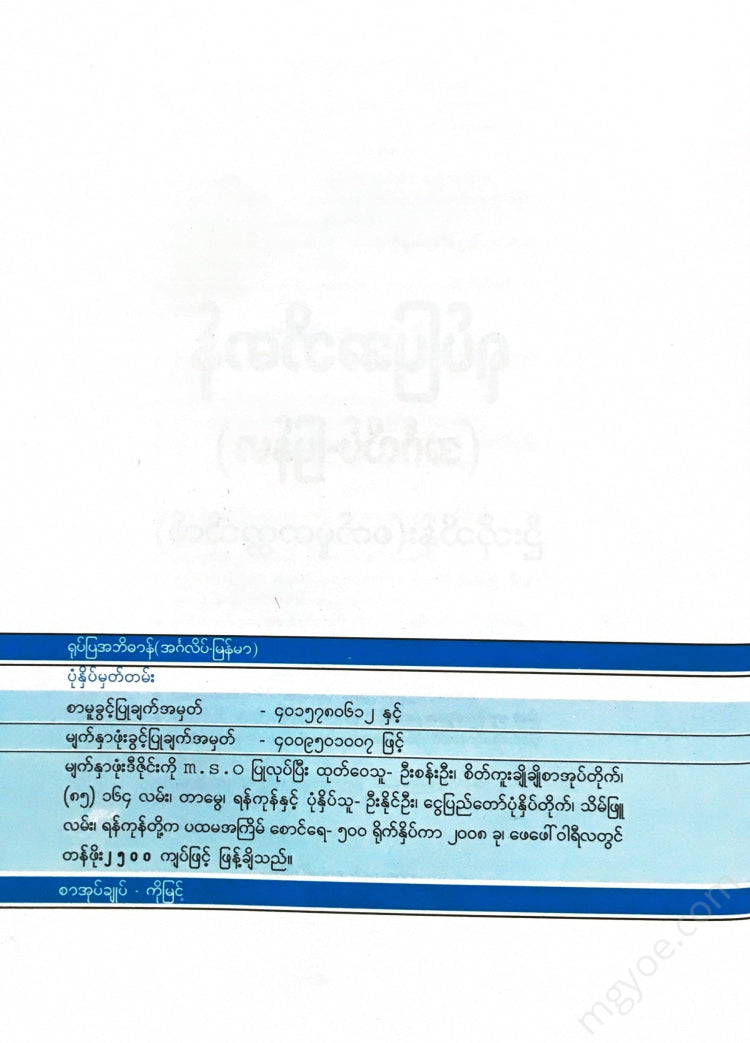 ရုပ်ပြအဘိဓာန်(အင်္ဂလိပ်-မြန်မာ)
ပုံနှိပ်မှတ်တမ်း
စာမူခွင့်ပြုချက်အမှတ် - ၄၀၁၅၇၈၀၆၁၂ နှင့်
မျက်နှာဖုံးခွင့်ပြုချက်အမှတ် - ၄၀၀၉၅၀၁၀၀၇ ဖြင့်
မျက်နှာဖုံးဒီဇိုင်းကို m.s.o ပြုလုပ်ပြီး ထုတ်ဝေသူ- ဦးစန်းဦး၊ စိတ်ကူးချိုချိုစာအုပ်တိုက်၊
(၈၅) ၁၆၄ လမ်း၊ တာမွေ၊ ရန်ကုန်နှင့် ပုံနှိပ်သူ- ဦးနိုင်ဦး၊ ငွေပြည်တော်ပုံနှိပ်တိုက်၊ သိမ်ဖြူ
လမ်း၊ ရန်ကုန်တို့က ပထမအကြိမ် စောင်ရေ- ၅၀၀ ရိုက်နှိပ်ကာ ၂၀၀၈ ခု၊ ဖေဖေါ်ဝါရီလတွင်
တန်ဖိုး၂၅၀၀ ကျပ်ဖြင့် ဖြန့်ချိသည်။
စာအုပ်ချုပ် - ကိုမြင့်
mgyoe.com